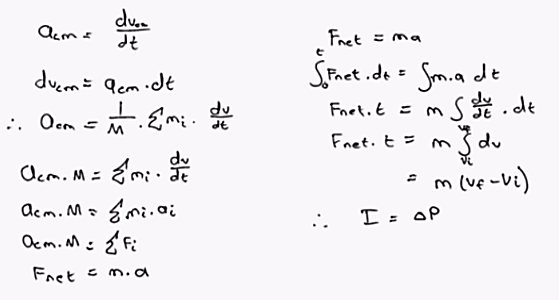 a_cm = dv_cm/dt
dv_cm = a_cm · dt
∴ a_cm = 1/M · Σm_i · dv/dt
a_cm · M = Σm_i · dv/dt
a_cm · M = Σm_i · a_i
a_cm · M = ΣF_i
F_net = m · a
F_net = ma
∫₀ᵗ F_net · dt = ∫m·a dt
F_net · t = m ∫ dv/dt · dt
F_net · t = m ∫_{v_i}^{v_f} dv
= m (v_f - v_i)
∴ I = ΔP